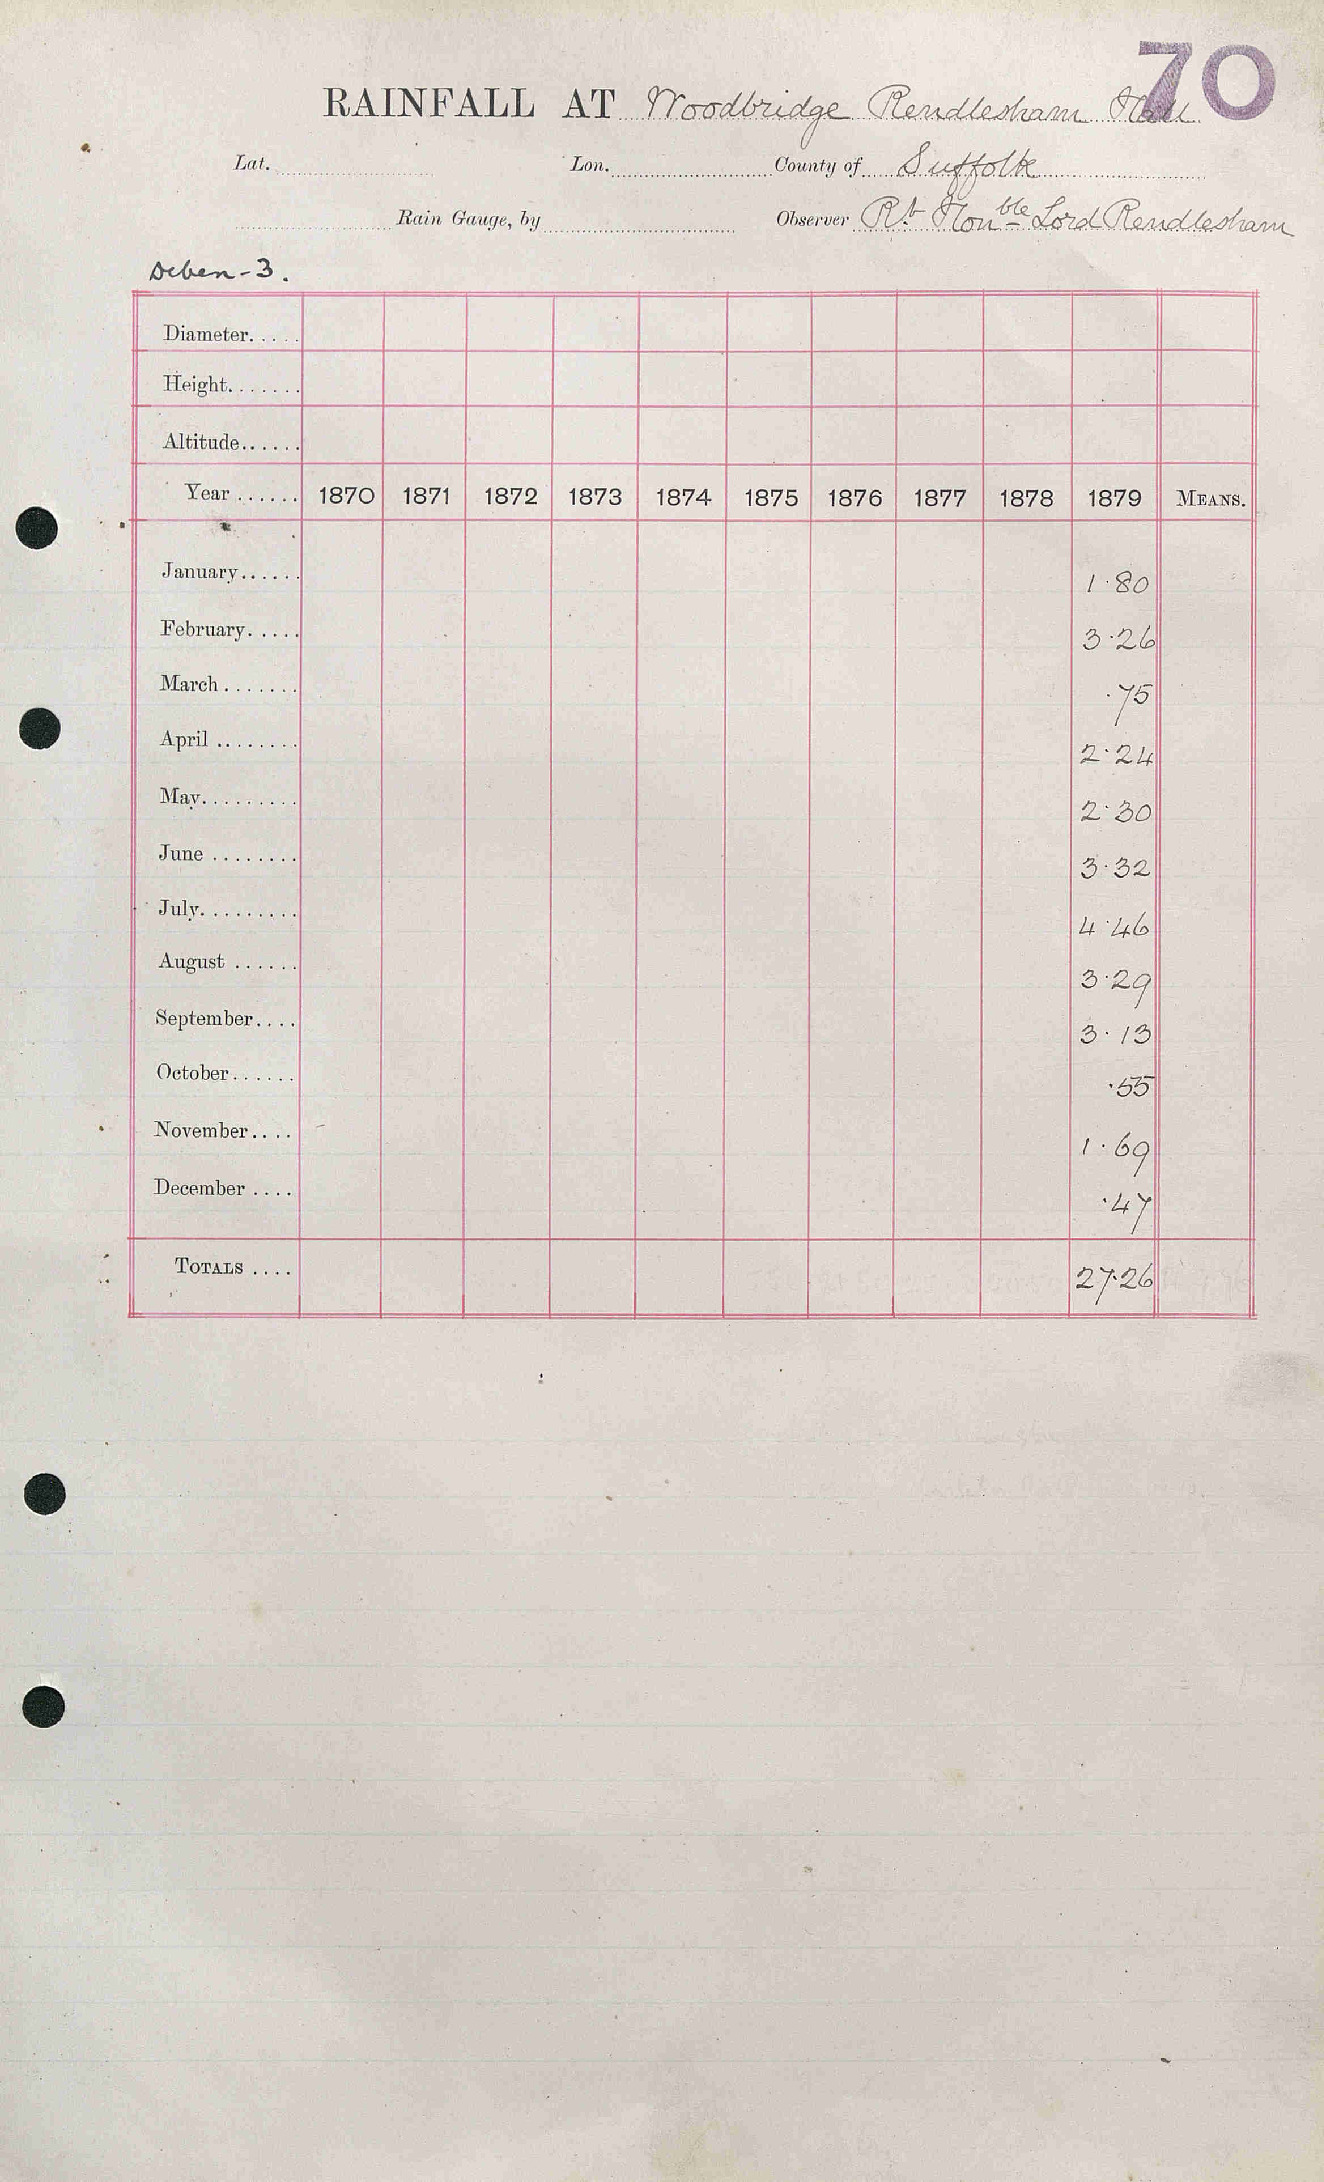 70
RAINFALL AT Woodbridge Rendlesham Hall
Lat. Lon. County of Suffolk
Rain Gauge, by Observer Rt Honble Lord Rendlesham
Deben - 3.
Diameter.....
Height.......
Altitude......
Year ...... 1870 1871 1872 1873 1874 1875 1876 1877 1878 1879 MEANS.
January...... 1.80
February..... 3.26
March ....... .75
April ........ 2.24
May......... 2.30
June ........ 3.32
July......... 4.46
August ...... 3.29
September.... 3.13
October...... .55
November.... 1.69
December .... .47
TOTALS .... 27.26